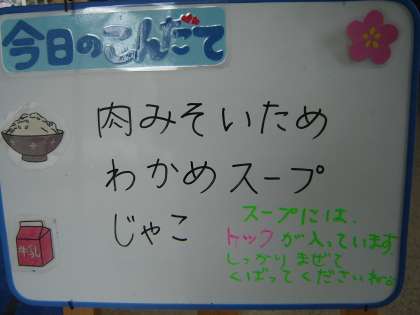 今日のこんだて
肉みそいため
わかめスープ
じゃこ
牛乳
スープには、
トックが入っています
しっかりまぜて
くばってくださいね。